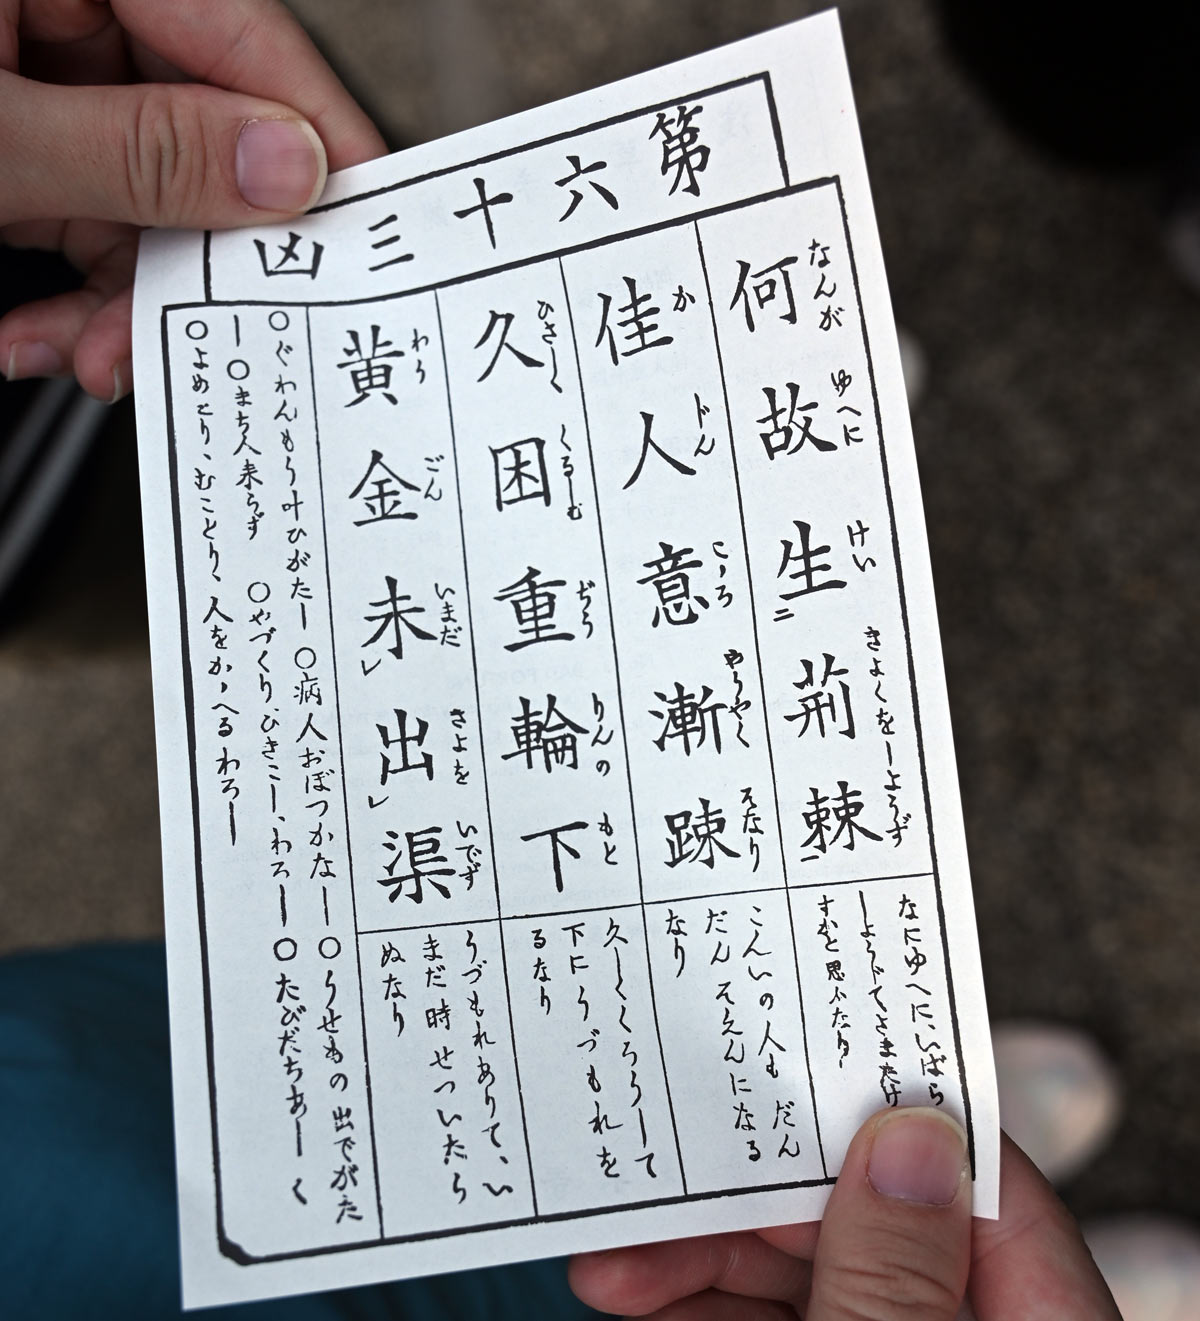 第六十三凶
何故生荊棘
なんが ゆへに けい きよくをしようず
二 一
佳人意漸踈
か ドん こゝろ やうやく そなり
久困重輪下
ひさしく くるしむ ぢう りんの もと
黄金未出渠
わう ごん いまだ きよを いでず
レ レ
なにゆへに、いばら
しようドてさまたけ
すかと思ふたり
こんいの人も だん
だん そえんになる
なり
久しくくろうして
下にうづもれを
るなり
うづもれありて、い
まだ時せついたら
ぬなり
○ぐわんもう叶ひがたし ○病人おぼつかなし ○うせもの出でがた
し ○まち人来らず ○やづくり、ひきこし、わろし ○たびだちあしく
○よめとり、むことり、人をかゝへるわろし